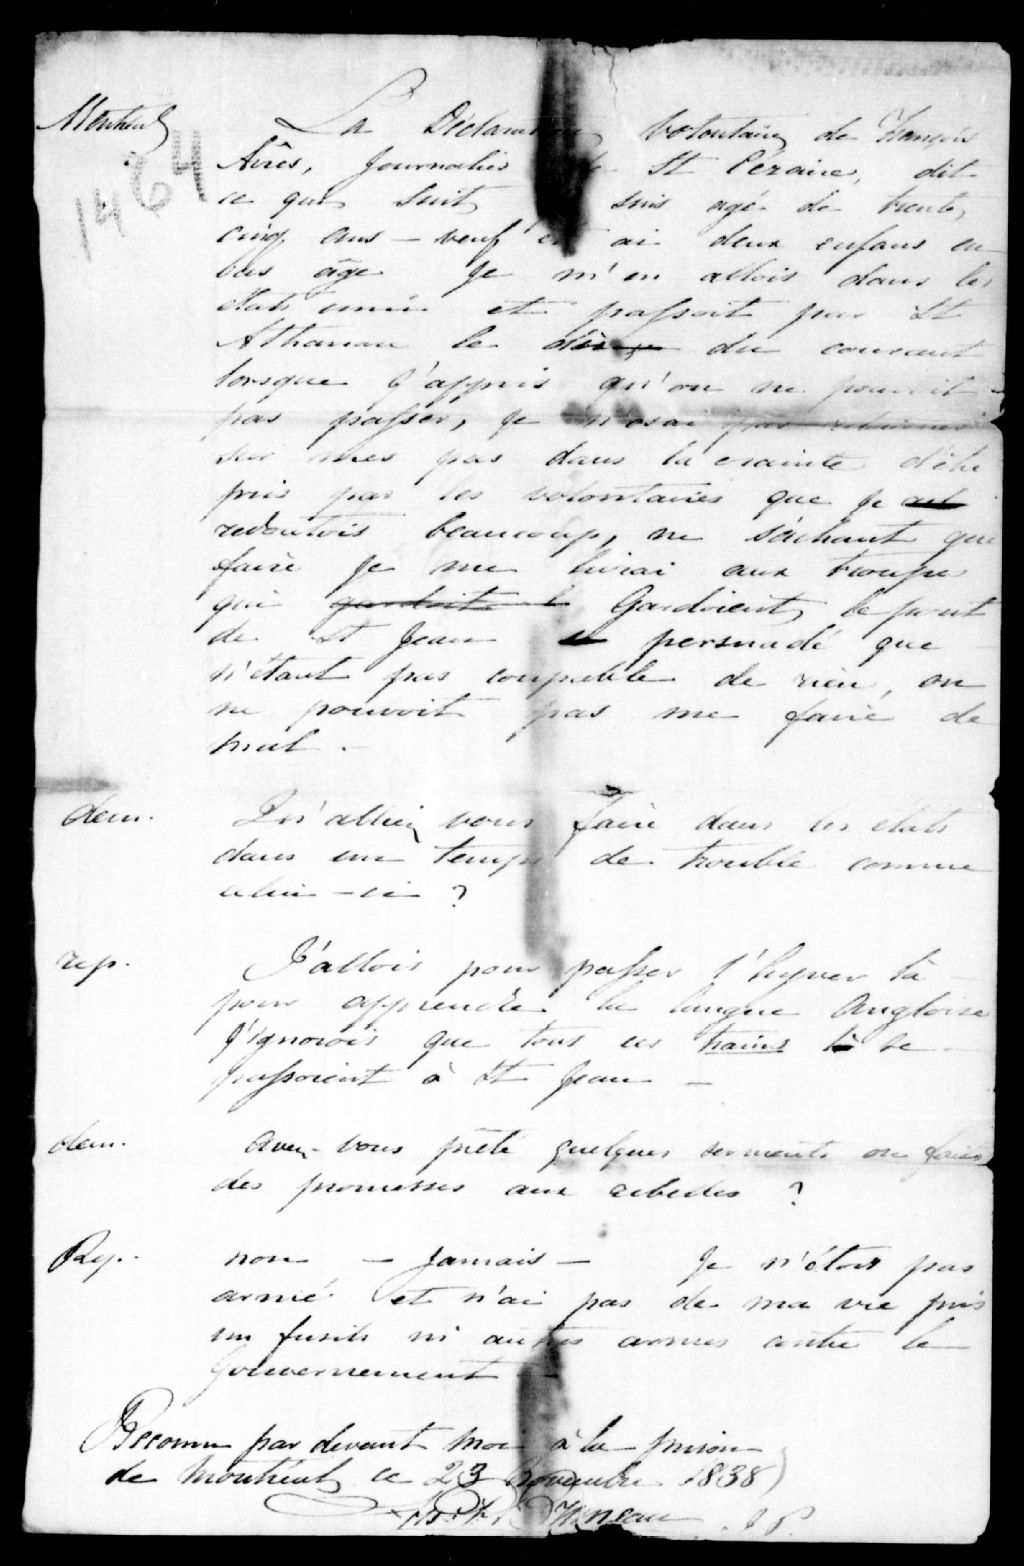 Montreal
1464
La Déclaration Volontaire de François
Avrês, Journalier de St Cézaire, dit
ce qui suit suis agé de trente
cinq ans — veuf et ai deux enfans en
bas âge Je m'en allois dans les
états unis et passoit par St
Athanase le du courant
lorsque j'appris qu'on ne pouvoit
pas passer, je n'osai pas retourner
sur mes pas dans la crainte d'être
pris par les volontaires que je
redoutois beaucoup, ne sachant que
faire je me livrai aux troupes
qui gardoit le Gardoient le pont
de St Jean persuadé que
n'étant pas coupable de rien, on
ne pouvoit pas me faire de
mal.
dem. Qu'alliez vous faire dans les états
dans un temps de trouble comme
celui-ci ?
rep. J'allois pour passer l'hyver là
pour apprendre la langue Angloise
J'ignorois que tous ces trains là se
passoient à St Jean —
dem. Avez-vous prêté quelques serments ou faire
des promesses aux rebelles ?
Rep. non — Jamais — Je n'étois pas
armé et n'ai pas de ma vie pris
un fusils ni autres armes contre le
Gouvernement —
Reconnu par devant moi à la prison
de Montréal ce 23 Novembre 1838
J P.